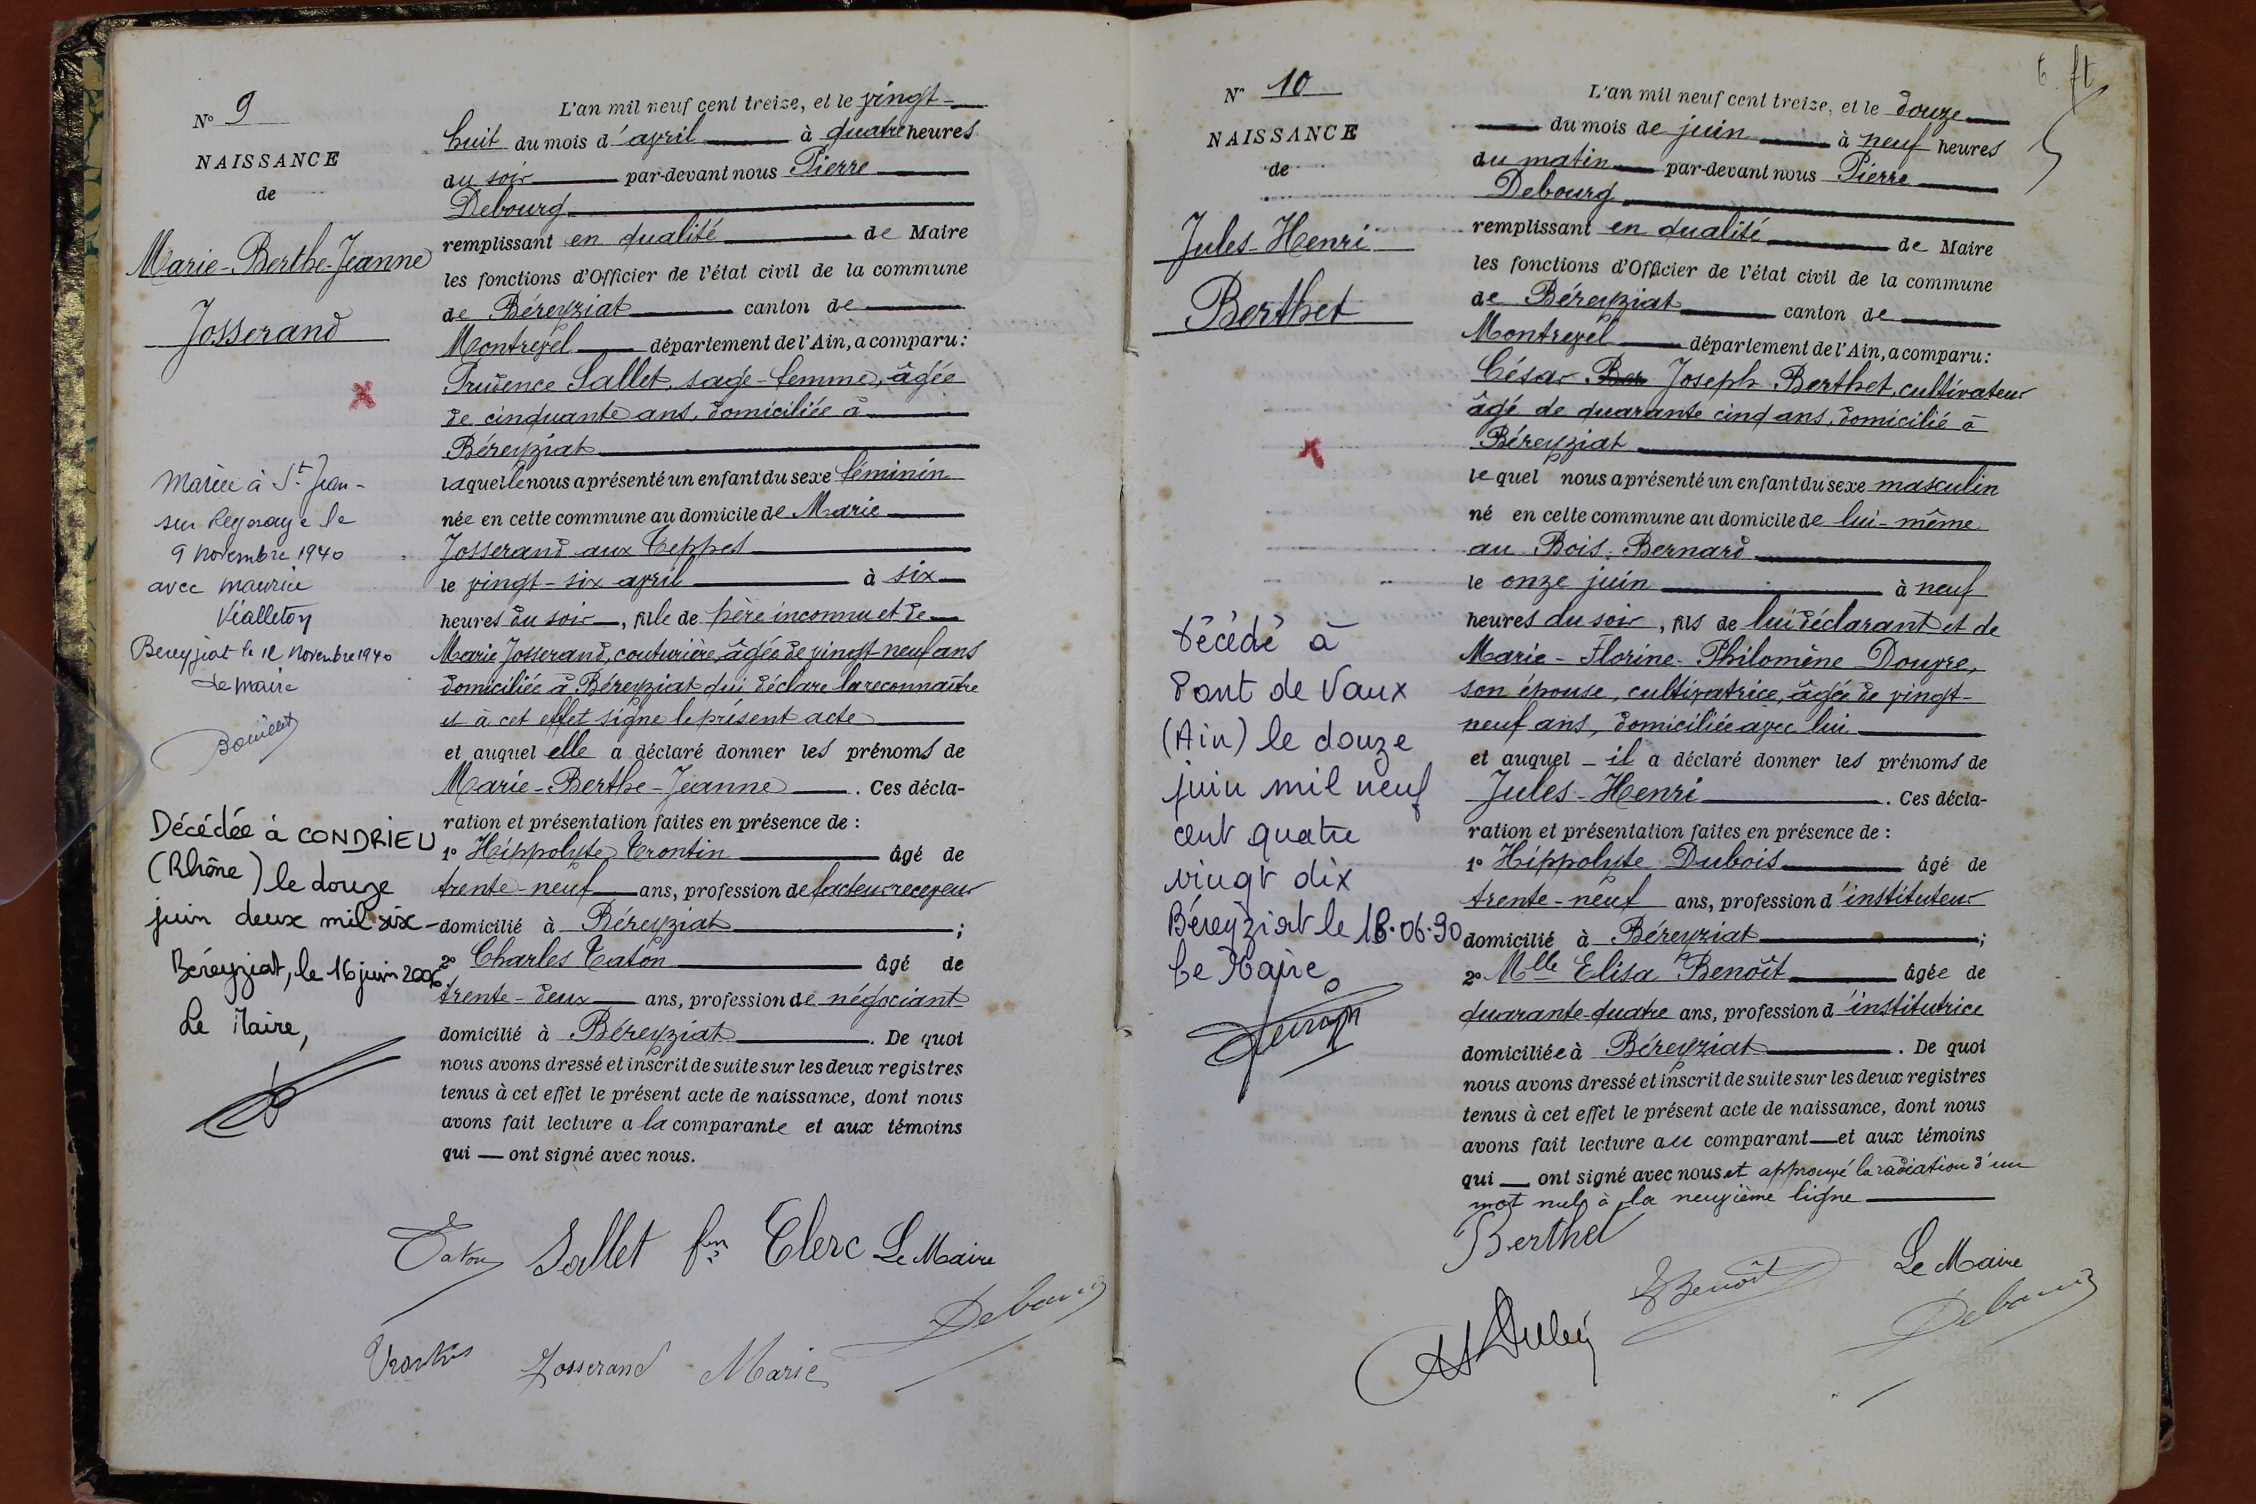 N° 9
NAISSANCE
de
Marie-Berthe-Jeanne
Josserand
Mariée à St Jean-
sur Reyssouze le
9 novembre 1940
avec Maurice
Vialleton
Bereyziat le 12 Novembre 1940
Le maire
Décédée à CONDRIEU
(Rhône) le douze
juin deux mil six-
Béréyziat, le 16 juin 2006
Le Maire,
L'an mil neuf cent treize, et le vingt-
huit du mois d'avril à quatre heures
du soir par-devant nous Pierre
Debourg
remplissant en qualité de Maire
les fonctions d'Officier de l'état civil de la commune
de Béreyziat canton de
Montrevel département de l'Ain, a comparu :
Prudence Sallet, sage-femme, âgée
de cinquante ans, domiciliée à
Béreyziat
laquelle nous a présenté un enfant du sexe féminin
née en cette commune au domicile de Marie
Josserand aux Teppes
le vingt-six avril à six
heures du soir, fille de père inconnu et de
Marie Josserand, couturière, âgée de vingt-neuf ans
domiciliée à Béreyziat qui déclare la reconnaître
et à cet effet signe le présent acte
et auquel elle a déclaré donner les prénoms de
Marie-Berthe-Jeanne. Ces décla-
ration et présentation faites en présence de :
1° Hippolyte Trontin âgé de
trente-neuf ans, profession de facteur receveur
domicilié à Béreyziat ;
2° Charles Taton âgé de
trente-deux ans, profession de négociant
domicilié à Béreyziat. De quoi
nous avons dressé et inscrit de suite sur les deux registres
tenus à cet effet le présent acte de naissance, dont nous
avons fait lecture a la comparante et aux témoins
qui — ont signé avec nous.
Taton Sallet fm Clerc Le Maire
Debourg
Trontin Josserand Marie
6 ft
N° 10
NAISSANCE
de
Jules-Henri
Berthet
Décédé à
Pont de Vaux
(Ain) le douze
juin mil neuf
cent quatre
vingt dix
Béreyziat le 18.06.90
Le Maire
L'an mil neuf cent treize, et le douze
du mois de juin à neuf heures
du matin par-devant nous Pierre
Debourg
remplissant en qualité de Maire
les fonctions d'Officier de l'état civil de la commune
de Béreyziat canton de
Montrevel département de l'Ain, a comparu :
César Ber Joseph Berthet, cultivateur
âgé de quarante cinq ans, domicilié à
Béreyziat
lequel nous a présenté un enfant du sexe masculin
né en cette commune au domicile de lui-même
au Bois Bernard
le onze juin à neuf
heures du soir, fils de lui déclarant et de
Marie-Florine-Philomène Douvre,
son épouse, cultivatrice, âgée de vingt-
neuf ans, domiciliée avec lui
et auquel - il a déclaré donner les prénoms de
Jules-Henri. Ces décla-
ration et présentation faites en présence de :
1° Hippolyte Dubois âgé de
trente-neuf ans, profession d'instituteur
domicilié à Béreyziat ;
2° Mlle Elisa Benoît âgée de
quarante-quatre ans, profession d'institutrice
domiciliée à Béreyziat. De quoi
nous avons dressé et inscrit de suite sur les deux registres
tenus à cet effet le présent acte de naissance, dont nous
avons fait lecture au comparant — et aux témoins
qui — ont signé avec nous et approuvé la radiation d'un
mot nul à la neuvième ligne
Berthet
Le Maire
E Benoît
Debourg
H Dubois